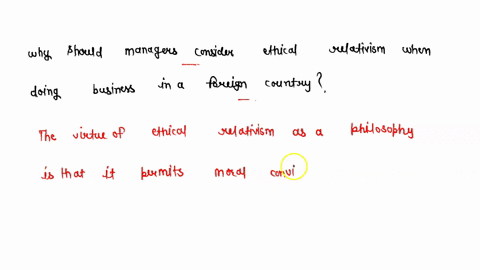 why should managers consider ethical relativism when
doing business in a foreign country?
The virtue of ethical relativism as a philosophy
is that it permits moral convi